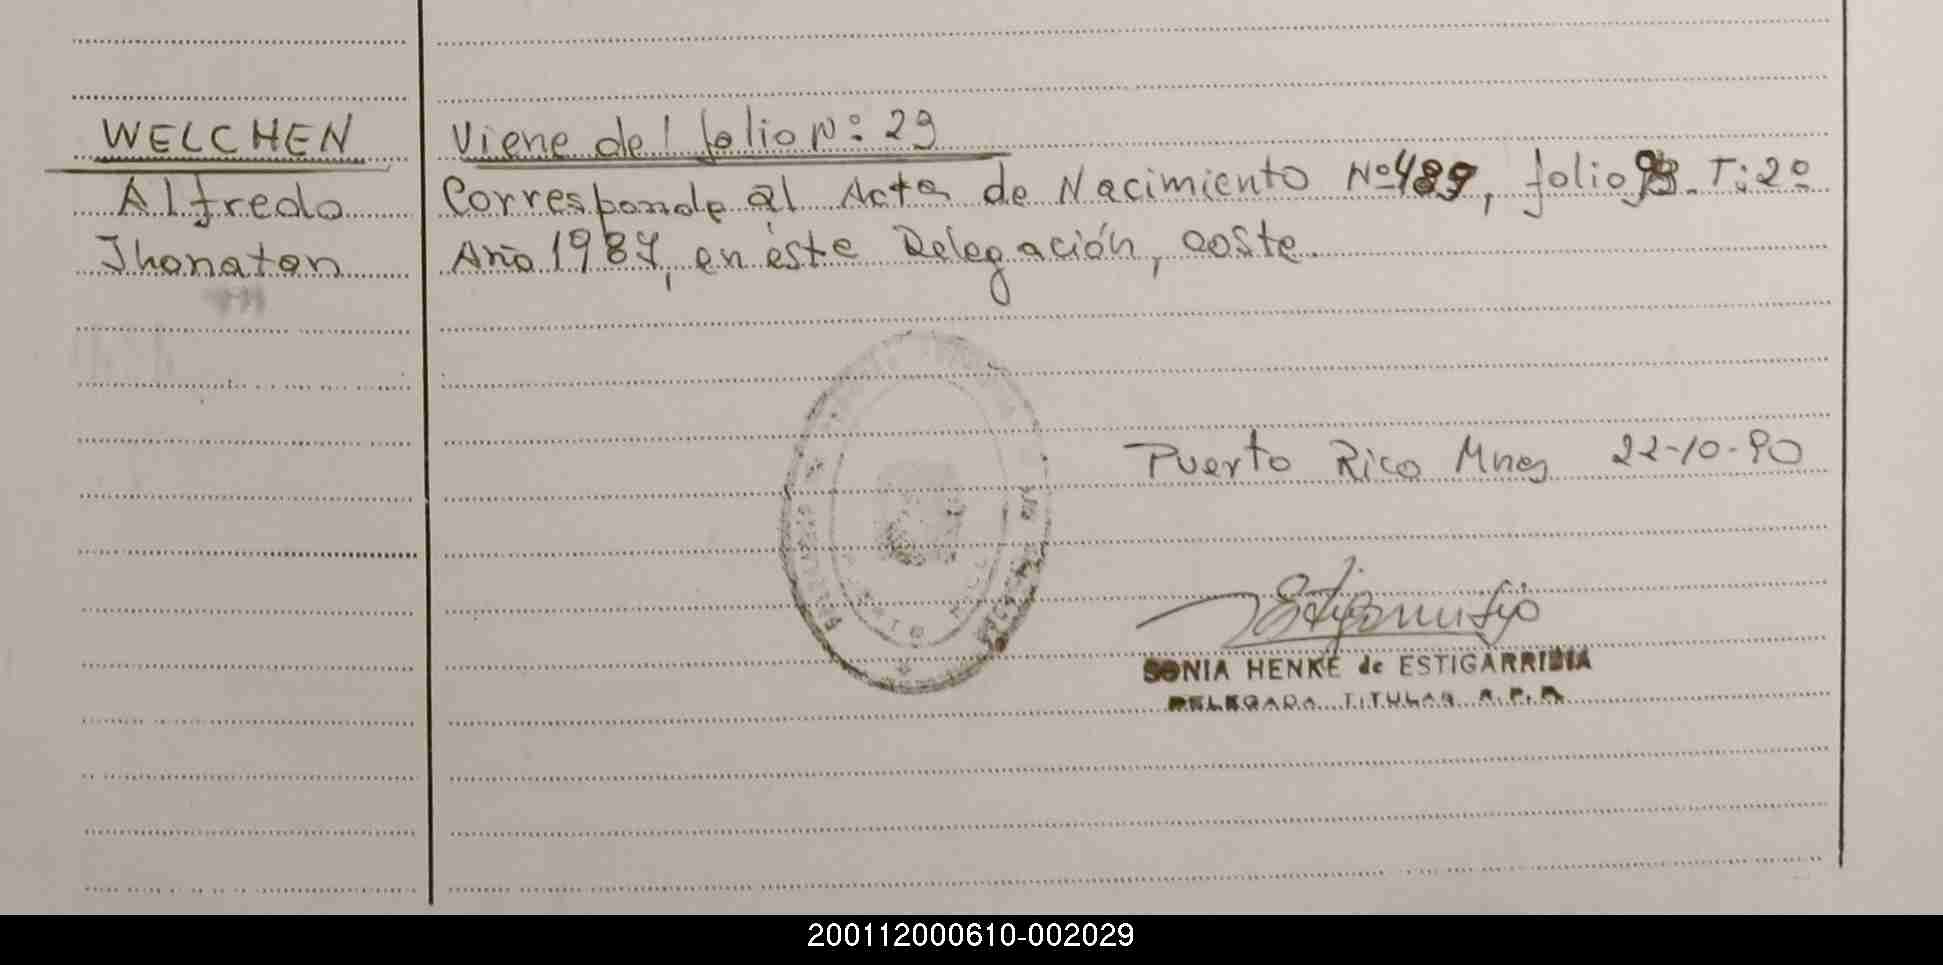 WELCHEN
Alfredo
Jhonatan
Viene del folio Nº: 29
Corresponde al Acta de Nacimiento Nº 489, folio T: 2º
Año 1987, en éste Delegación, coste.
Puerto Rico Mnes 22-10-90
SONIA HENKE de ESTIGARRIBIA
DELEGADA TITULAR R. P. P.
200112000610-002029